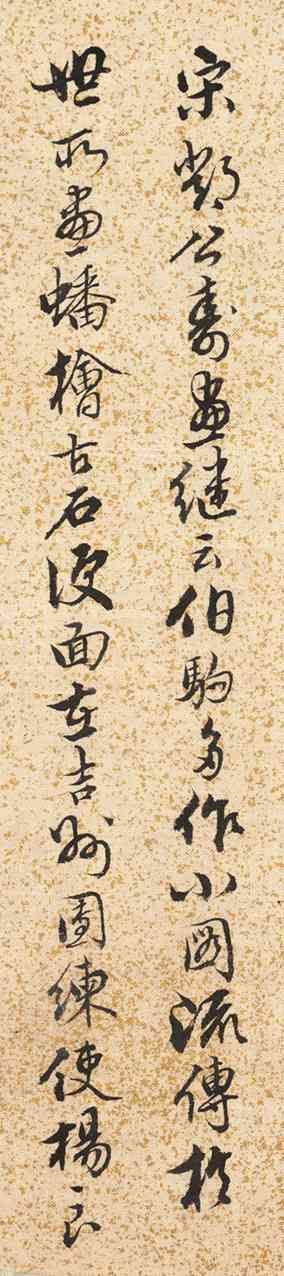 宋鄧公壽畫繼云伯駒多作小圖流傳於
世所畫蟠檜古石便面在吉州團練使楊